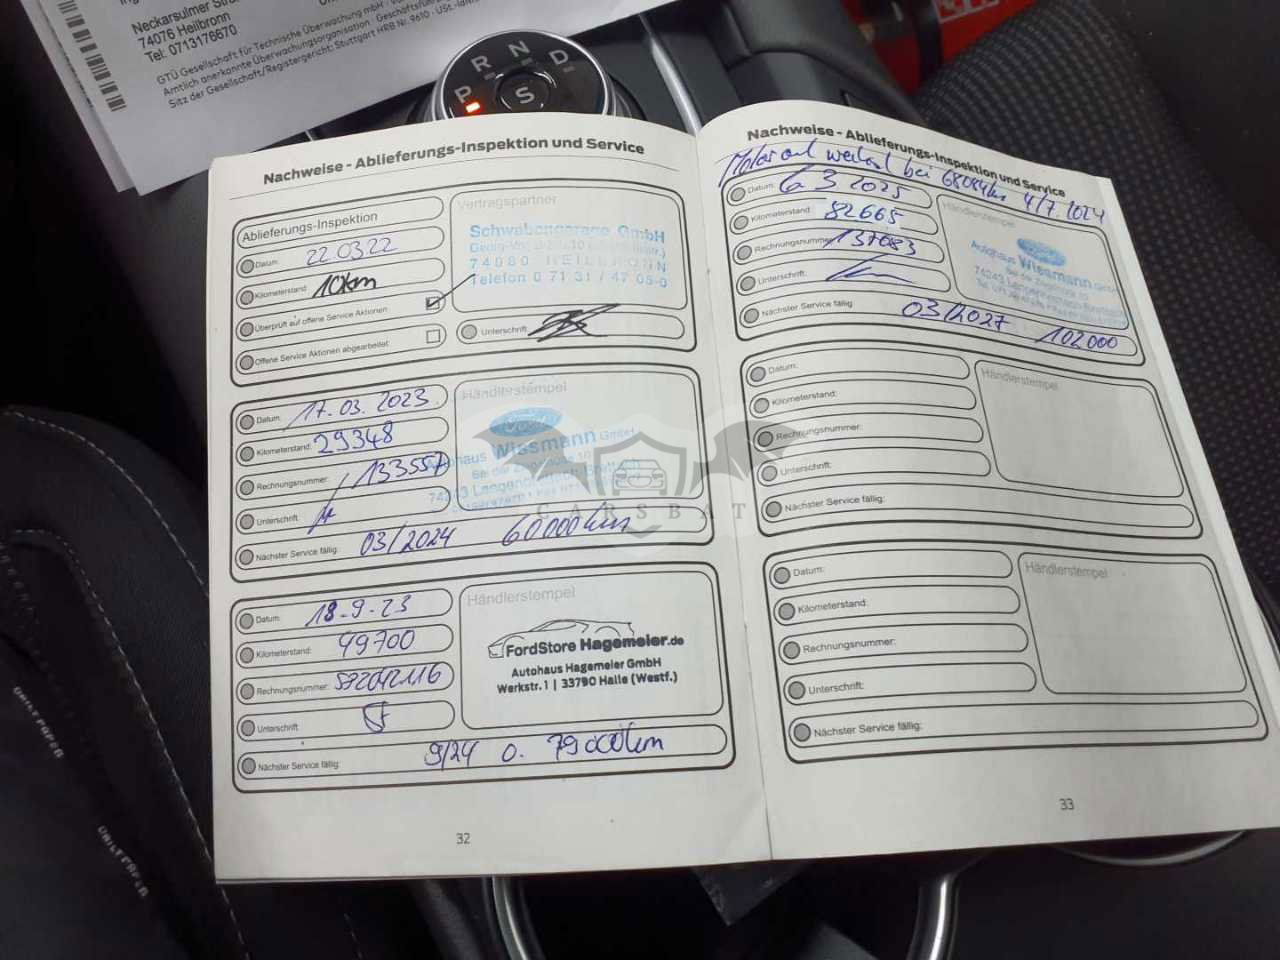 Neckarsulmer
74076 Heilbronn
Tel: 0713176670
GTÜ Gesellschaft für Technische Überwachung mbH
Amtlich anerkannte Überwachungsorganisation · Geschäftsführer
Sitz der Gesellschaft/Registergericht: Stuttgart HRB Nr. 9610 · USt.-IdNr
P R N D
S
Nachweise - Ablieferungs-Inspektion und Service
Ablieferungs-Inspektion
Datum: 22.03.22
Kilometerstand: 10km
Überprüft auf offene Service Aktionen
Offene Service Aktionen abgearbeitet
Vertragspartner
Schwabengarage GmbH
74080 HEILBRONN
Telefon 0 71 31 / 47 05-0
Unterschrift:
Datum: 17.03.2023
Kilometerstand: 29348
Rechnungsnummer: 133557
Unterschrift:
Nächster Service fällig: 03/2024 60000km
Händlerstempel
Ford
Autohaus Wissmann GmbH
74243 Langenbrettach
CARSBAT
Datum: 18.9.23
Kilometerstand: 49700
Rechnungsnummer: 592042116
Unterschrift:
Nächster Service fällig: 9/24 o. 79000km
Händlerstempel
FordStore Hagemeier.de
Autohaus Hagemeier GmbH
Werkstr. 1 | 33790 Halle (Westf.)
32
Nachweise - Ablieferungs-Inspektion und Service
bei 68084km 4/7.2024
Datum: 6.3.2025
Kilometerstand: 82665
Rechnungsnummer: 137083
Unterschrift:
Nächster Service fällig: 03/2027 102000
Händlerstempel
Autohaus Wissmann GmbH
Datum:
Kilometerstand:
Rechnungsnummer:
Unterschrift:
Nächster Service fällig:
Händlerstempel
Datum:
Kilometerstand:
Rechnungsnummer:
Unterschrift:
Nächster Service fällig:
Händlerstempel
33